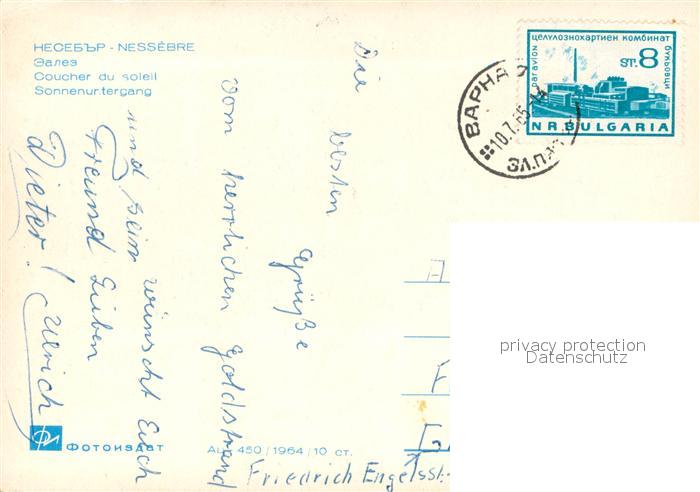 НЕСЕБЪР - NESSÈBRE
Залез
Coucher du soleil
Sonnenur.tergang
целулознохартиен комбинат
par avion
ST. 8
букьовци
N R. BULGARIA
ВАРНА
10.7.65-14
ЗЛ.П
Die besten Grüße
vom herrlichen Goldstrand
und Eurer wünscht Euch
Freund
Dieter! Ulrich
privacy protection
Datenschutz
Фотоиздат
450 / 1964 / 10 ст.
Friedrich Engelsst.